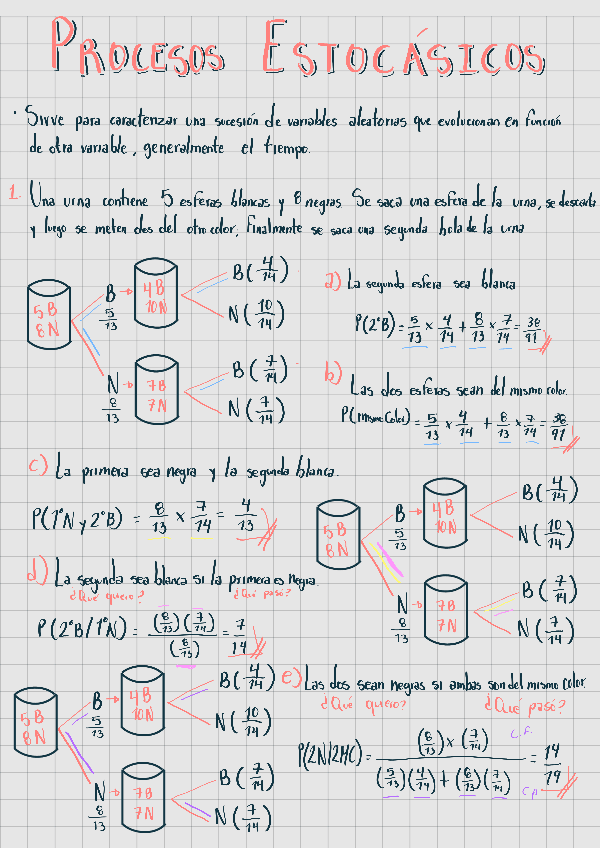 PROCESOS ESTOCÁSICOS
· Sirve para caracterizar una sucesión de variables aleatorias que evolucionan en función
de otra variable, generalmente el tiempo.
1. Una urna contiene 5 esferas blancas y 8 negras Se saca una esfera de la urna, se descarta
y luego se meten dos del otro color, Finalmente se saca una segunda bola de la urna
5B
8N
B
5/13
4B
10N
B(4/14)
N(10/14)
N
8/13
7B
7N
B(7/14)
N(7/14)
a) La segunda esfera sea blanca
P(2°B) = 5/13 x 4/14 + 8/13 x 7/14 = 38/91
b) Las dos esferas sean del mismo color.
P(mismo Color) = 5/13 x 4/14 + 8/13 x 7/14 = 38/91
c) La primera sea negra y la segunda blanca.
P(1°N y 2°B) = 8/13 x 7/14 = 4/13
5B
8N
B
5/13
4B
10N
B(4/14)
N(10/14)
N
8/13
7B
7N
B(7/14)
N(7/14)
d) La segunda sea blanca si la primera es negra.
¿Qué quero? ¿Qué pasó?
P(2°B/1°N) = (8/13)(7/14)/(8/13) = 7/14
5B
8N
B
5/13
4B
10N
B(4/14)
N(10/14)
N
8/13
7B
7N
B(7/14)
N(7/14)
e) Las dos sean negras si ambas son del mismo color.
¿Qué quero? ¿Qué pasó?
P(2N/2MC) = (8/13) x (7/14) / (5/13)(4/14) + (8/13)(7/14) = 14/19
C.F.
C.P.